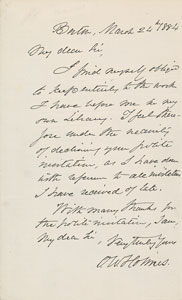 Boston, March 22nd 1884
My dear Sir,
I find myself obliged
to keep entirely to the work
I have before me in my
own Library. I feel there-
fore under the necessity
of declining your polite
invitation, as I have done
with reference to all invitations
I have received of late.
With many thanks for
the polite invitation, I am,
My dear Sir, Very truly Yours
O W Holmes.